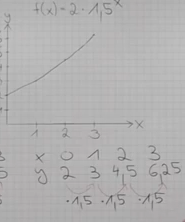 f(x)=2·1,5^x
y
x
1 2 3
x 0 1 2 3
y 2 3 4,5 6,25
·1,5 ·1,5 ·1,5